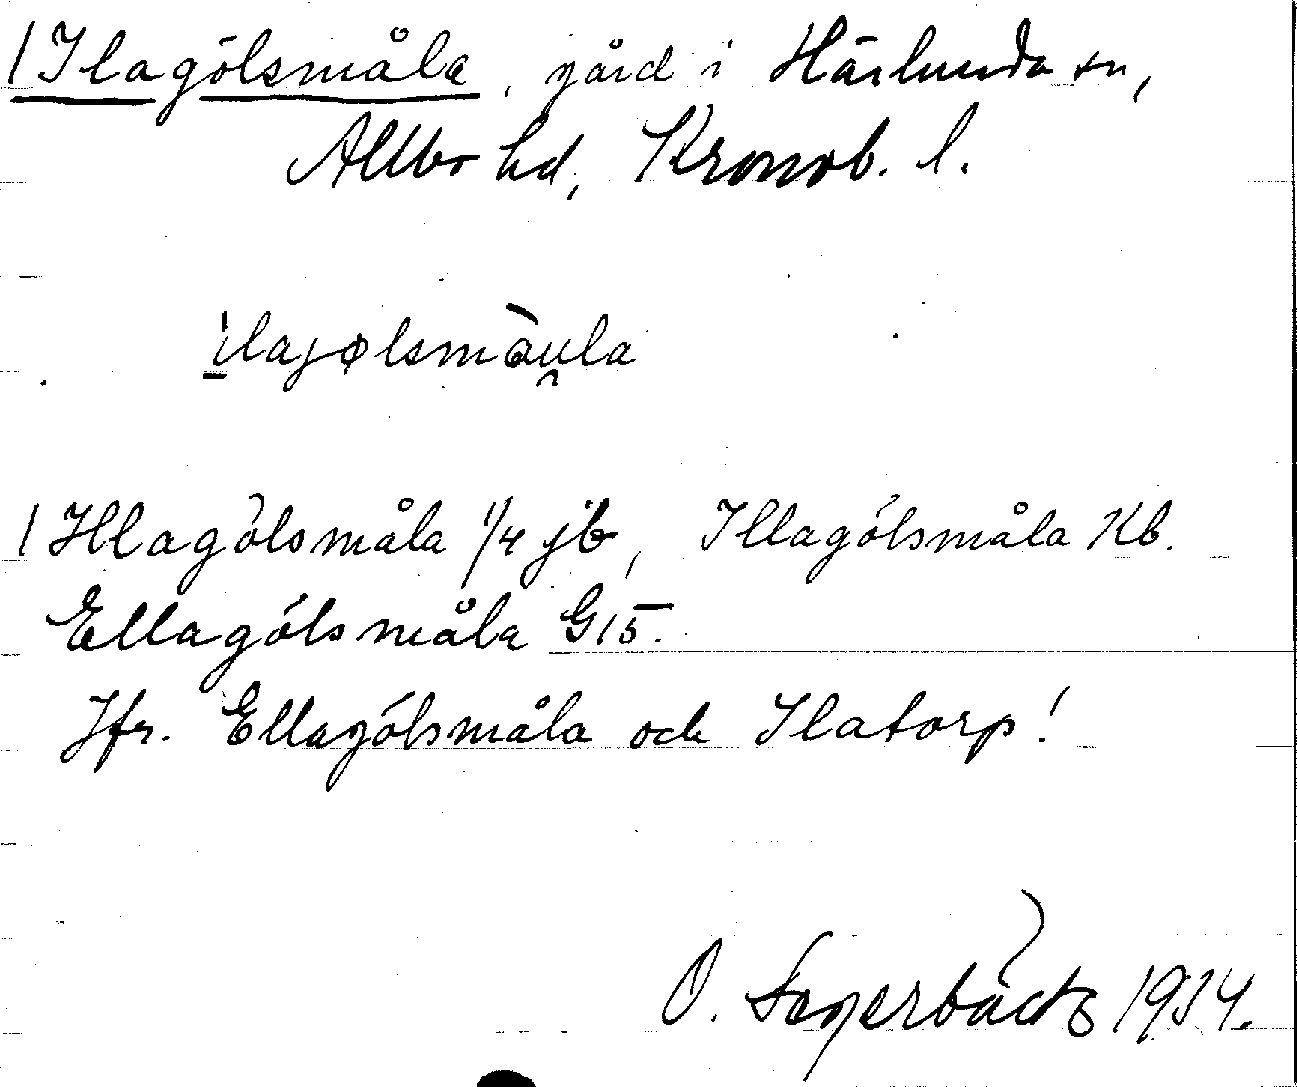 /Ilagölsmåla, gård i Härlunda sn,
Allbo hd, Kronob. l.
ilagølsmàu̯la
/Illagölsmåla 1/4 jb, Illagölsmåla Kb.
Ellagölsmåla G15.
Jfr. Ellagölsmåla och Ilatorp!
O. Segerbäck 1934.